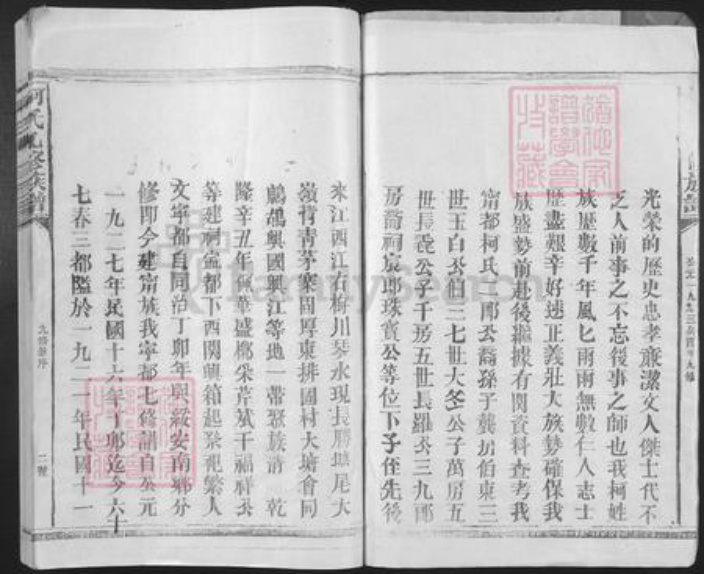 光榮的歷史忠孝廉潔文人傑士代不
乏人前事之不忘後事之師也我柯姓
族歷數千年風匕雨雨無數仁人志士
歷盡艱辛好速正義壯大族勢確保我
族盛勢前赴後繼據有関資料查考我
甯都柯氏三郎公裔孫子龔加伯東三
世玉白公伯三七世大冬公子萬房五
世長養公子千房五世長羅公三九郎
房裔祠宸郎珠寳公等位下子侄先後
來江西江右梅川琴水現長勝塘尾大
嶺背青茅寨固厚東排圍村大塘會同
鷓鴣興國興江等地一帶聚族清 乾
隆辛丑年 華盛 采芹斌千福祥公
等建祠甯都下西関興箱起祭祀繁人
文寧都自同治丁卯年與綏安南鄉分
修即今建甯族我寧都七修譜自公元
一九二七年民國十六年丁卯迄今六十
七春三都隘於一九二一年民國十一
柯氏九修族譜
九修叁序
二號
族譜
FamilySearch